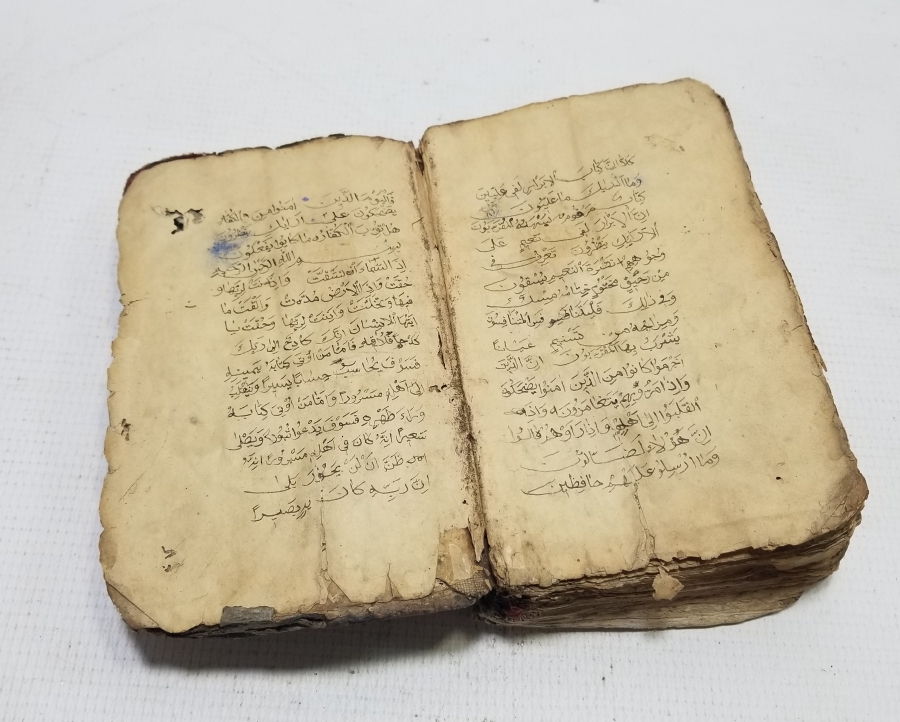 كلا ان كتاب الابرار لفى عليين
وما ادريك ما عليون
كتاب مرقوم يشهده المقربون
ان الابرار لفى نعيم على
الارائك ينظرون تعرف فى
وجوههم نضرة النعيم يسقون
من رحيق مختوم ختامه مسك
وفى ذلك فليتنافس المتنافسون
ومزاجه من تسنيم عينا
يشرب بها المقربون ان الذين
اجرموا كانوا من الذين امنوا يضحكون
واذا مروا بهم يتغامزون واذا
انقلبوا الى اهلهم واذا راوهم قالوا
ان هؤلاء لضالون
وما ارسلوا عليهم حافظين
فاليوم الذين امنوا من الكفار
يضحكون على الارائك ينظرون
هل ثوب الكفار ما كانوا يفعلون
بسم الله الرحمن الرحيم
اذا السماء انشقت واذنت لربها و
حقت واذا الارض مدت والقت ما
فيها وتخلت واذنت لربها وحقت يا
ايها الانسان انك كادح الى ربك
كدحا فملاقيه فاما من اوتى كتابه بيمينه
فسوف يحاسب حسابا يسيرا وينقلب
الى اهله مسرورا واما من اوتى كتابه
وراء ظهره فسوف يدعوا ثبورا ويصلى
سعيرا انه كان فى اهله مسرورا انه
ظن ان لن يحور بلى
ان ربه كان به بصيرا